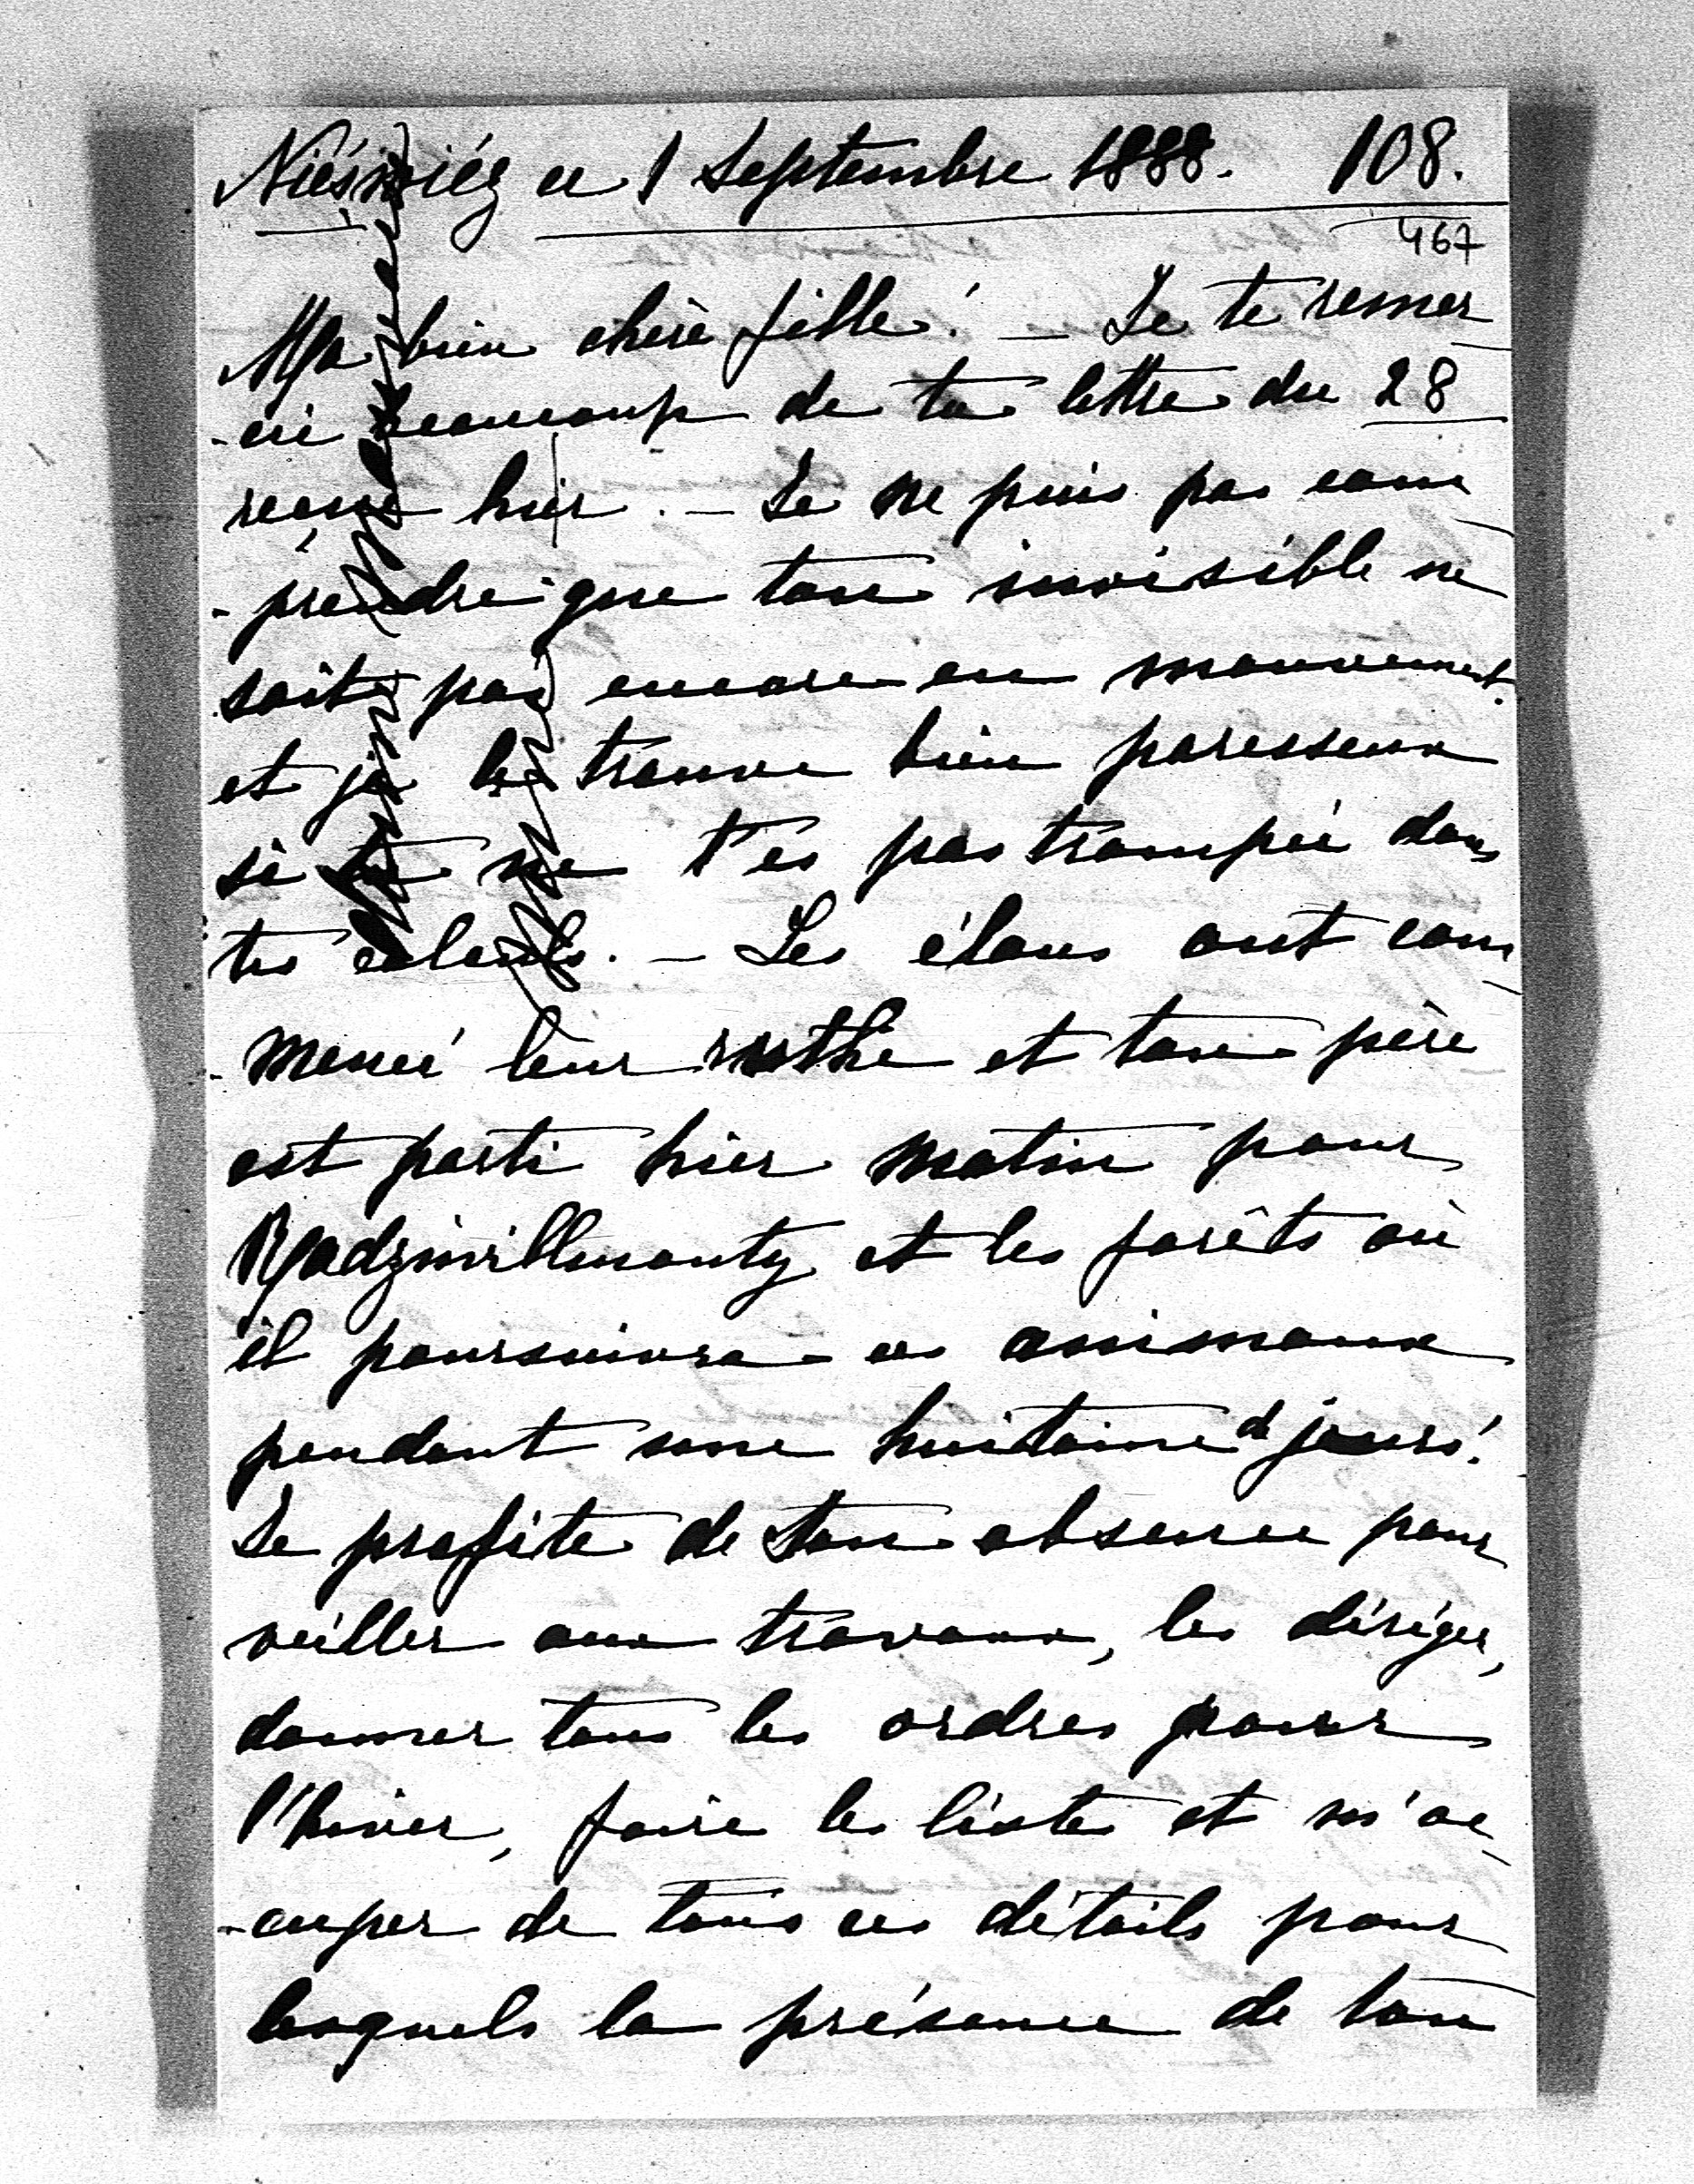 Nieświéz ce 1 Septembre 1888. 108.
467
Ma bien chère fille! – Je te remer
-cie beaucoup de ta lettre du 28
reçue hier. – Je ne puis pas com
-prendre que ton invisible ne
soit pas encore en mouvement.
et je le trouve bien paresseux
si tu ne t'es pas trompée dans
tes calculs. – Les élans ont com
-mencé leur ruthe et ton père
est parti hier matin pour
Radziwillmonty et les forêts où
il poursuivra ces animaux
pendant une huitaine d jours!
Je profite de son absence pour
veiller aux travaux, les diriger,
donner tous les ordres pour
l'hiver, faire les listes et m'oc
-cuper de tous ces détails pour
lesquels la présence de ton